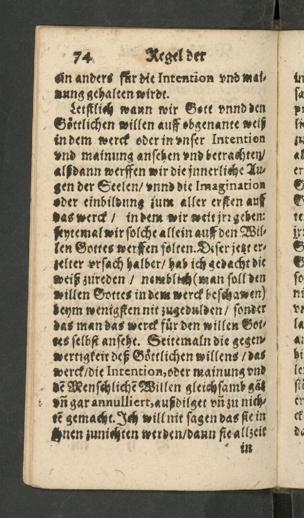 74 Regel der
ein anders für die Intention vnd mai-
nung gehalten wirdt.
Letstlich wann wir Gott vnnd den
Göttlichen willen auff obgenante weiß
in dem werck oder in vnser Intention
vnd mainung ansehen vnd betrachten/
alßdann werffen wir die jnnerliche Au-
gen der Seelen/ vnnd die Imagination
oder einbildung zum aller ersten auff
das werck/ in dem wir weit jrr gehen:
seytemal wir solche allein auff den Wil-
len Gottes werffen solten. Diser jetzt er-
zelter vrsach halber/ hab ich gedacht die
weiß zureden / namblich (man soll den
willen Gottes in dem werck beschawen)
beym wenigsten nit zugedulden/ sonder
das man das werck für den willen Got-
tes selbst ansehe. Seitemaln die gegen-
wertigkeit deß Göttlichen willens/ das
werck/ die Intention, oder mainung vnd
dē Menschlichē Willen gleichsamb gātz
vñ gar annulliert, außdilget vñ zu nich-
tē gemacht. Ich will nit sagen das sie in
jhnen zunichten werden/ dann sie allzeit
in